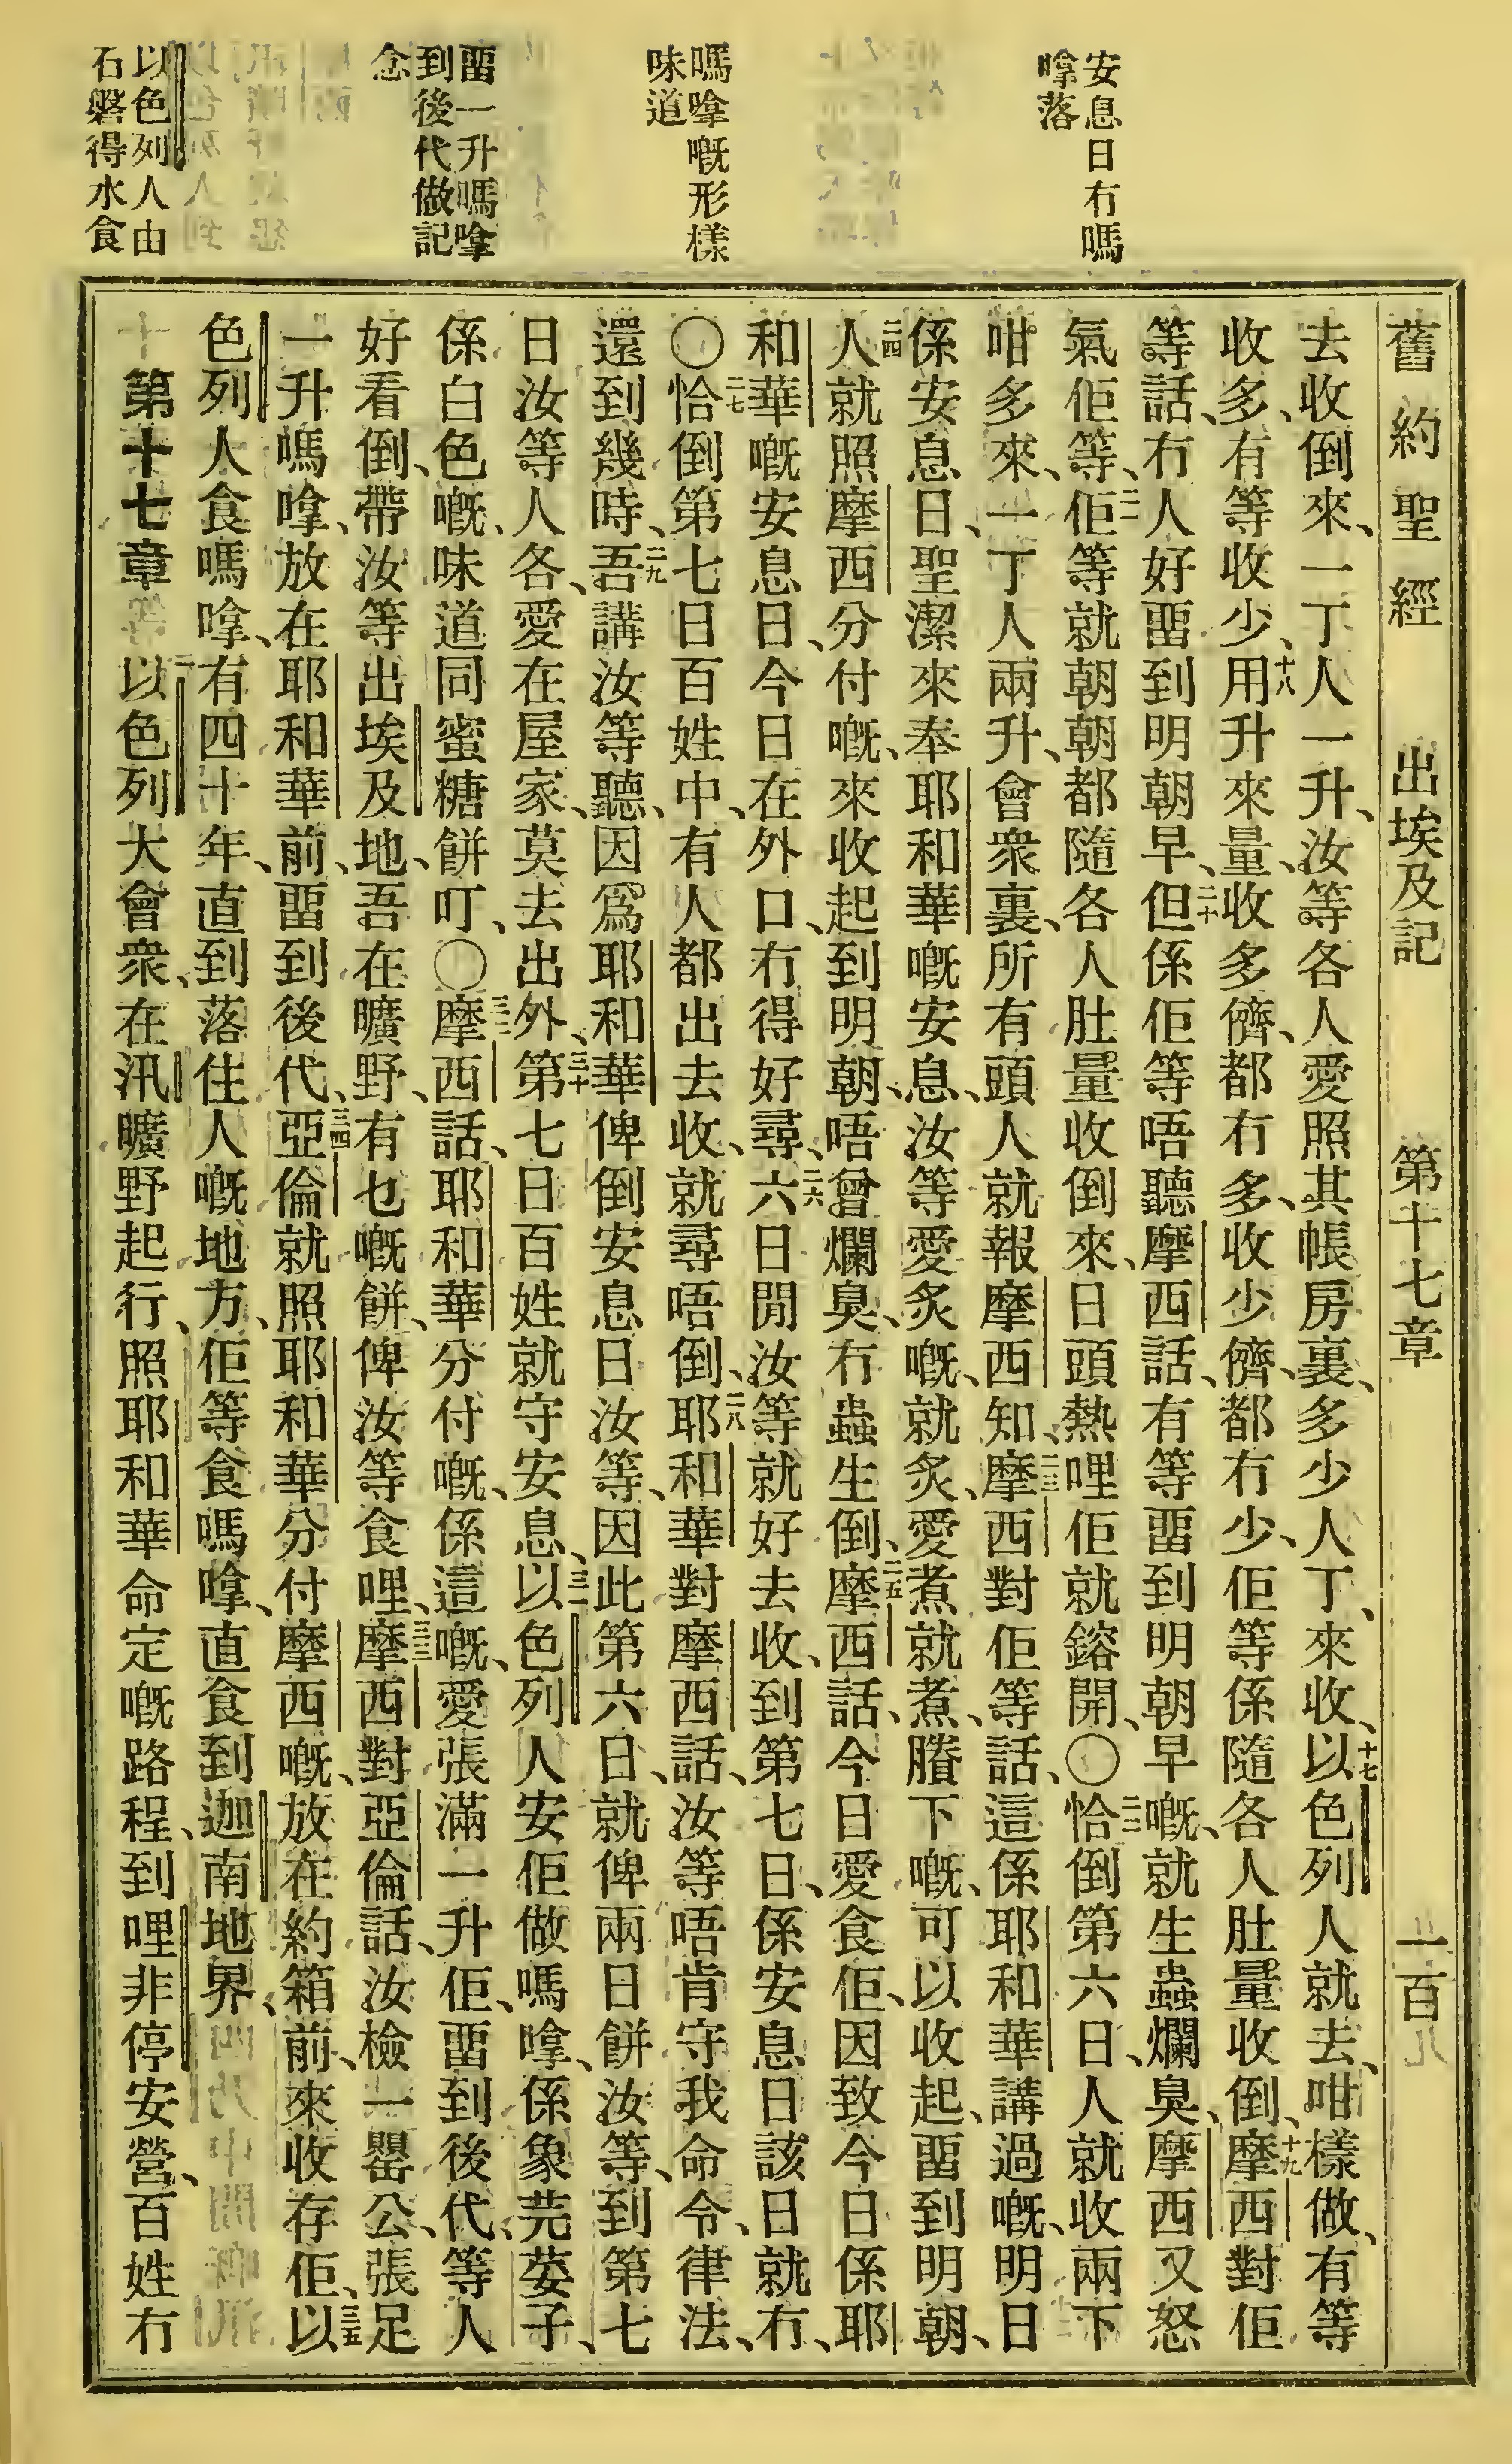 安息日冇嗎
嗱落
嗎嗱嘅形樣
味道
畱一升嗎嗱
到後代做記
念
以色列人由
石磐得水食
舊約聖經 出埃及記 第十七章 一百
去收倒來、一丁人一升、汝等各人愛照其帳房裏、多少人丁、來收、十七以色列人就去、咁樣做、有等
收多、有等收少、十八用升來量、收多儕、都冇多、收少儕、都冇少、佢等係隨各人肚量收倒、十九摩西對佢
等話、冇人好畱到明朝早、二十但係佢等唔聽摩西話、有等畱到明朝早嘅、就生蟲爛臭、摩西又怒
氣佢等、二一佢等就朝朝都隨各人肚量收倒來、日頭熱哩佢就鎔開、〇二二恰倒第六日、人就收兩下
咁多來、一丁人兩升、會衆裏、所有頭人就報摩西知、二三摩西對佢等話、這係耶和華講過嘅、明日
係安息日、聖潔來奉耶和華嘅安息、汝等愛炙嘅、就炙、愛煮就煮、賸下嘅、可以收起、畱到明朝、
二四人就照摩西分付嘅、來收起到明朝、唔曾爛臭、冇蟲生倒、二五摩西話、今日愛食佢、因致今日係耶
和華嘅安息日、今日在外口、冇得好尋、二六六日閒汝等就好去收、到第七日、係安息日該日就冇、
〇二七恰倒第七日百姓中、有人都出去收、就尋唔倒、二八耶和華對摩西話、汝等唔肯守我命令、律法、
還到幾時、二九吾講汝等聽、因爲耶和華俾倒安息日汝等、因此第六日、就俾兩日餅汝等、到第七
日汝等人各、愛在屋家、莫去出外、三十第七日百姓就守安息、三一以色列人安佢做嗎嗱、係象芫荽子、
係白色嘅、味道同蜜糖餅叮、〇三二摩西話、耶和華分付嘅、係這嘅、愛張滿一升佢、畱到後代、等人
好看倒、帶汝等出埃及地、吾在曠野、有乜嘅餅、俾汝等食哩、三三摩西對亞倫話、汝檢一罌公、張足
一升嗎嗱、放在耶和華前、畱到後代、三四亞倫就照耶和華分付摩西嘅、放在約箱前、來收存佢、三五以
色列人食嗎嗱、有四十年、直到落住人嘅地方、佢等食嗎嗱、直食到迦南地界、
第十七章 一以色列大會衆、在汛曠野起行、照耶和華命定嘅路程、到哩非停安營、百姓冇